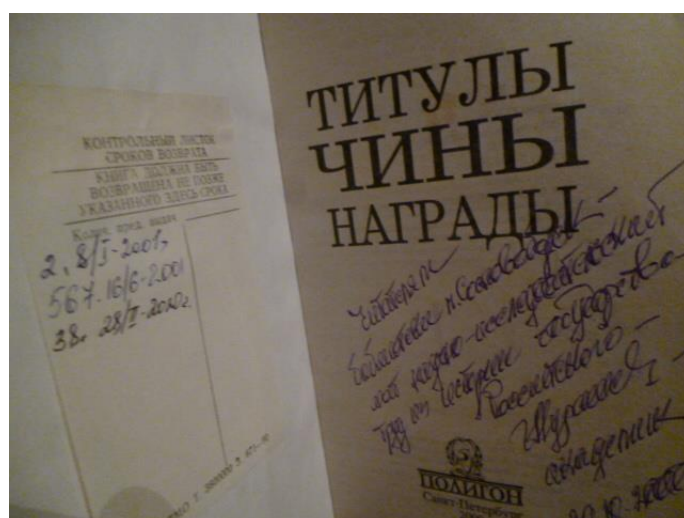 КОНТРОЛЬНЫЙ ЛИСТОК
СРОКОВ ВОЗВРАТА
КНИГА ДОЛЖНА БЫТЬ
ВОЗВРАЩЕНА НЕ ПОЗЖЕ
УКАЗАННОГО ЗДЕСЬ СРОКА
Колич. пред. выдач
2. 8/I-2001г
567. 16/6-2001
38. 28/II-2010г.
ТИТУЛЫ
ЧИНЫ
НАГРАДЫ
Читателям
библиотеки
мой научно-исследовательский
труд по истории государства
Российского –
академик
ПОЛИГОН
Санкт-Петербург